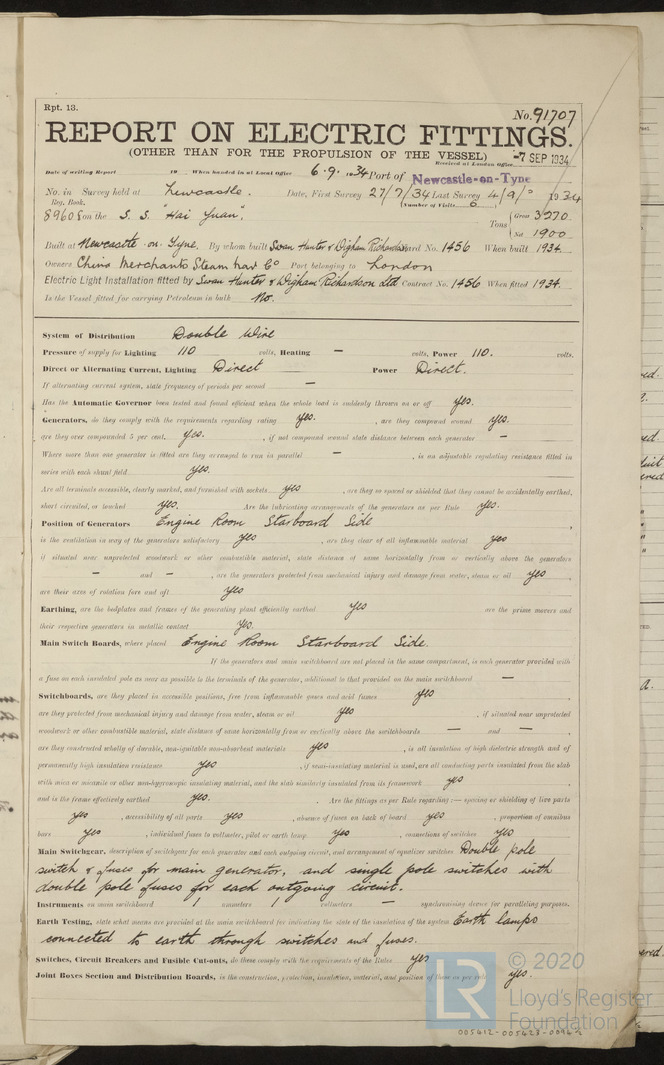 Rpt. 13.
No. 91707
REPORT ON ELECTRIC FITTINGS.
(OTHER THAN FOR THE PROPULSION OF THE VESSEL)
Received at London Office -7 SEP 1934
Date of writing Report 19 When handed in at Local Office 6.9.1934 Port of Newcastle-on-Tyne
No. in Survey held at Newcastle. Date, First Survey 27/7/34 Last Survey 4/9/ 1934
Reg. Book. (Number of Visits 6
89605 on the S. S. "Hai Yuan". Tons { Gross 3270
Net 1900
Built at Newcastle-on-Tyne. By whom built Swan Hunter & Wigham Richardson Yard No. 1456 When built 1934.
Owners China Merchants Steam Nav Co Port belonging to London
Electric Light Installation fitted by Swan Hunter & Wigham Richardson Ltd Contract No. 1456 When fitted 1934.
Is the Vessel fitted for carrying Petroleum in bulk No.
System of Distribution Double Wire
Pressure of supply for Lighting 110 volts, Heating — volts, Power 110. volts.
Direct or Alternating Current, Lighting Direct Power Direct.
If alternating current system, state frequency of periods per second —
Has the Automatic Governor been tested and found efficient when the whole load is suddenly thrown on or off yes.
Generators, do they comply with the requirements regarding rating yes. , are they compound wound yes.
are they over compounded 5 per cent. yes. , if not compound wound state distance between each generator —
Where more than one generator is fitted are they arranged to run in parallel — , is an adjustable regulating resistance fitted in
series with each shunt field yes.
Are all terminals accessible, clearly marked, and furnished with sockets yes , are they so spaced or shielded that they cannot be accidentally earthed,
short circuited, or touched yes. Are the lubricating arrangements of the generators as per Rule yes.
Position of Generators Engine Room Starboard Side
is the ventilation in way of the generators satisfactory yes , are they clear of all inflammable material yes
if situated near unprotected woodwork or other combustible material, state distance of same horizontally from or vertically above the generators
— and — , are the generators protected from mechanical injury and damage from water, steam or oil yes ,
are their axes of rotation fore and aft yes
Earthing, are the bedplates and frames of the generating plant efficiently earthed yes are the prime movers and
their respective generators in metallic contact yes.
Main Switch Boards, where placed Engine Room Starboard Side.
If the generators and main switchboard are not placed in the same compartment, is each generator provided with
a fuse on each insulated pole as near as possible to the terminals of the generator, additional to that provided on the main switchboard —
Switchboards, are they placed in accessible positions, free from inflammable gases and acid fumes yes ,
are they protected from mechanical injury and damage from water, steam or oil yes , if situated near unprotected
woodwork or other combustible material, state distance of same horizontally from or vertically above the switchboards — and — ,
are they constructed wholly of durable, non-ignitable non-absorbent materials yes , is all insulation of high dielectric strength and of
permanently high insulation resistance yes , if semi-insulating material is used, are all conducting parts insulated from the slab
with mica or micanite or other non-hygroscopic insulating material, and the slab similarly insulated from its framework yes ,
and is the frame effectively earthed yes. . Are the fittings as per Rule regarding:— spacing or shielding of live parts
yes , accessibility of all parts yes , absence of fuses on back of board yes , proportion of omnibus
bars yes , individual fuses to voltmeter, pilot or earth lamp yes , connections of switches yes
Main Switchgear, description of switchgear for each generator and each outgoing circuit, and arrangement of equalizer switches Double pole
switch & fuses for main generator, and single pole switches with
double pole fuses for each outgoing circuit.
Instruments on main switchboard 1 ammeters 1 voltmeters — synchronising device for paralleling purposes.
Earth Testing, state what means are provided at the main switchboard for indicating the state of the insulation of the system Earth lamps
connected to earth through switches and fuses.
Switches, Circuit Breakers and Fusible Cut-outs, do these comply with the requirements of the Rules yes
Joint Boxes Section and Distribution Boards, is the construction, protection, insulation, material, and position of these as per rule yes.
© 2020
LR
Lloyd's Register
Foundation